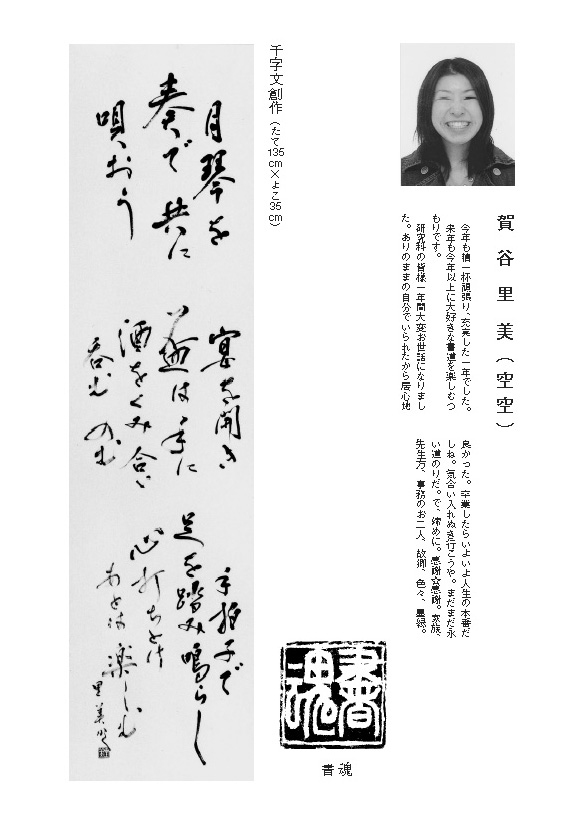 賀谷里美(空空)
今年も精一杯頑張り、充実した一年でした。
来年も今年以上に大好きな書道を楽しむつ
もりです。
研究科の皆様一年間大変お世話になりまし
た。ありのままの自分でいられたから居心地
良かった。卒業したらいよいよ人生の本番だ
しね。気合い入れぬき行こうや。まだまだ永
い道のりだ。で、締めに。感謝☆感謝。家族、
先生方、事務のお二人、故郷、色々、墨縁。
千字文創作(たて135cm×よこ35cm)
月琴を
奏で共に
唄おう
宴を開き
盃は手に
酒をくみ合い
呑む のむ
手拍子で
足を踏み鳴らし
心打ちとけ
あとは楽しむ
里美
書魂
書魂